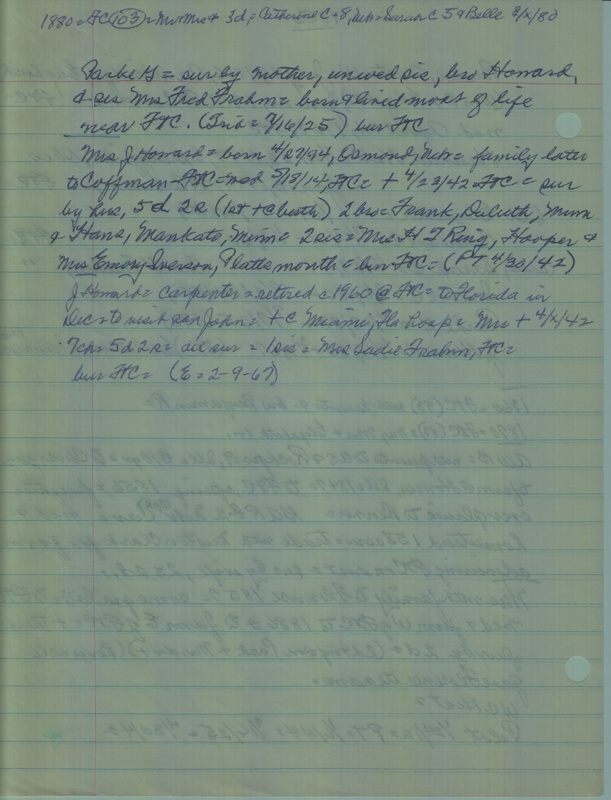 1880=AC(103)=Mr+Mrs+ 3d,=Catherine C+8, Neb=Susan C 5 & Belle 8/x/80
Parke G= sur by mother, unwed sis, bro Howard,
& sis Mrs Fred Frahm= born & lived most of life
near FtC. (Trib= 7/16/25) bur FtC
Mrs J Howard= born 4/27/94, Osmond, Neb= family later
to Coffman FtC=wed 5/13/14, FtC= + 4/23/42 FtC= sur
by hus, 5d 2s (1st + @ birth) 2 bro= Frank, Duluth, Minn
& Hans, Mankato, Minn= 2 sis= Mrs H T Ring, Hooper &
Mrs Emory Iverson, Plattsmouth= bur FtC= (PT 4/30/42)
J Howard= carpenter= retired c1960 @ FtC= to Florida in
Dec to visit son John= + @ Miami, Fla hosp= Mrs + 4/x/42
7ch= 5d 2s= all sur= 1 sis= Mrs Sadie Frahm, FtC=
bur FtC= (E=2-9-67)